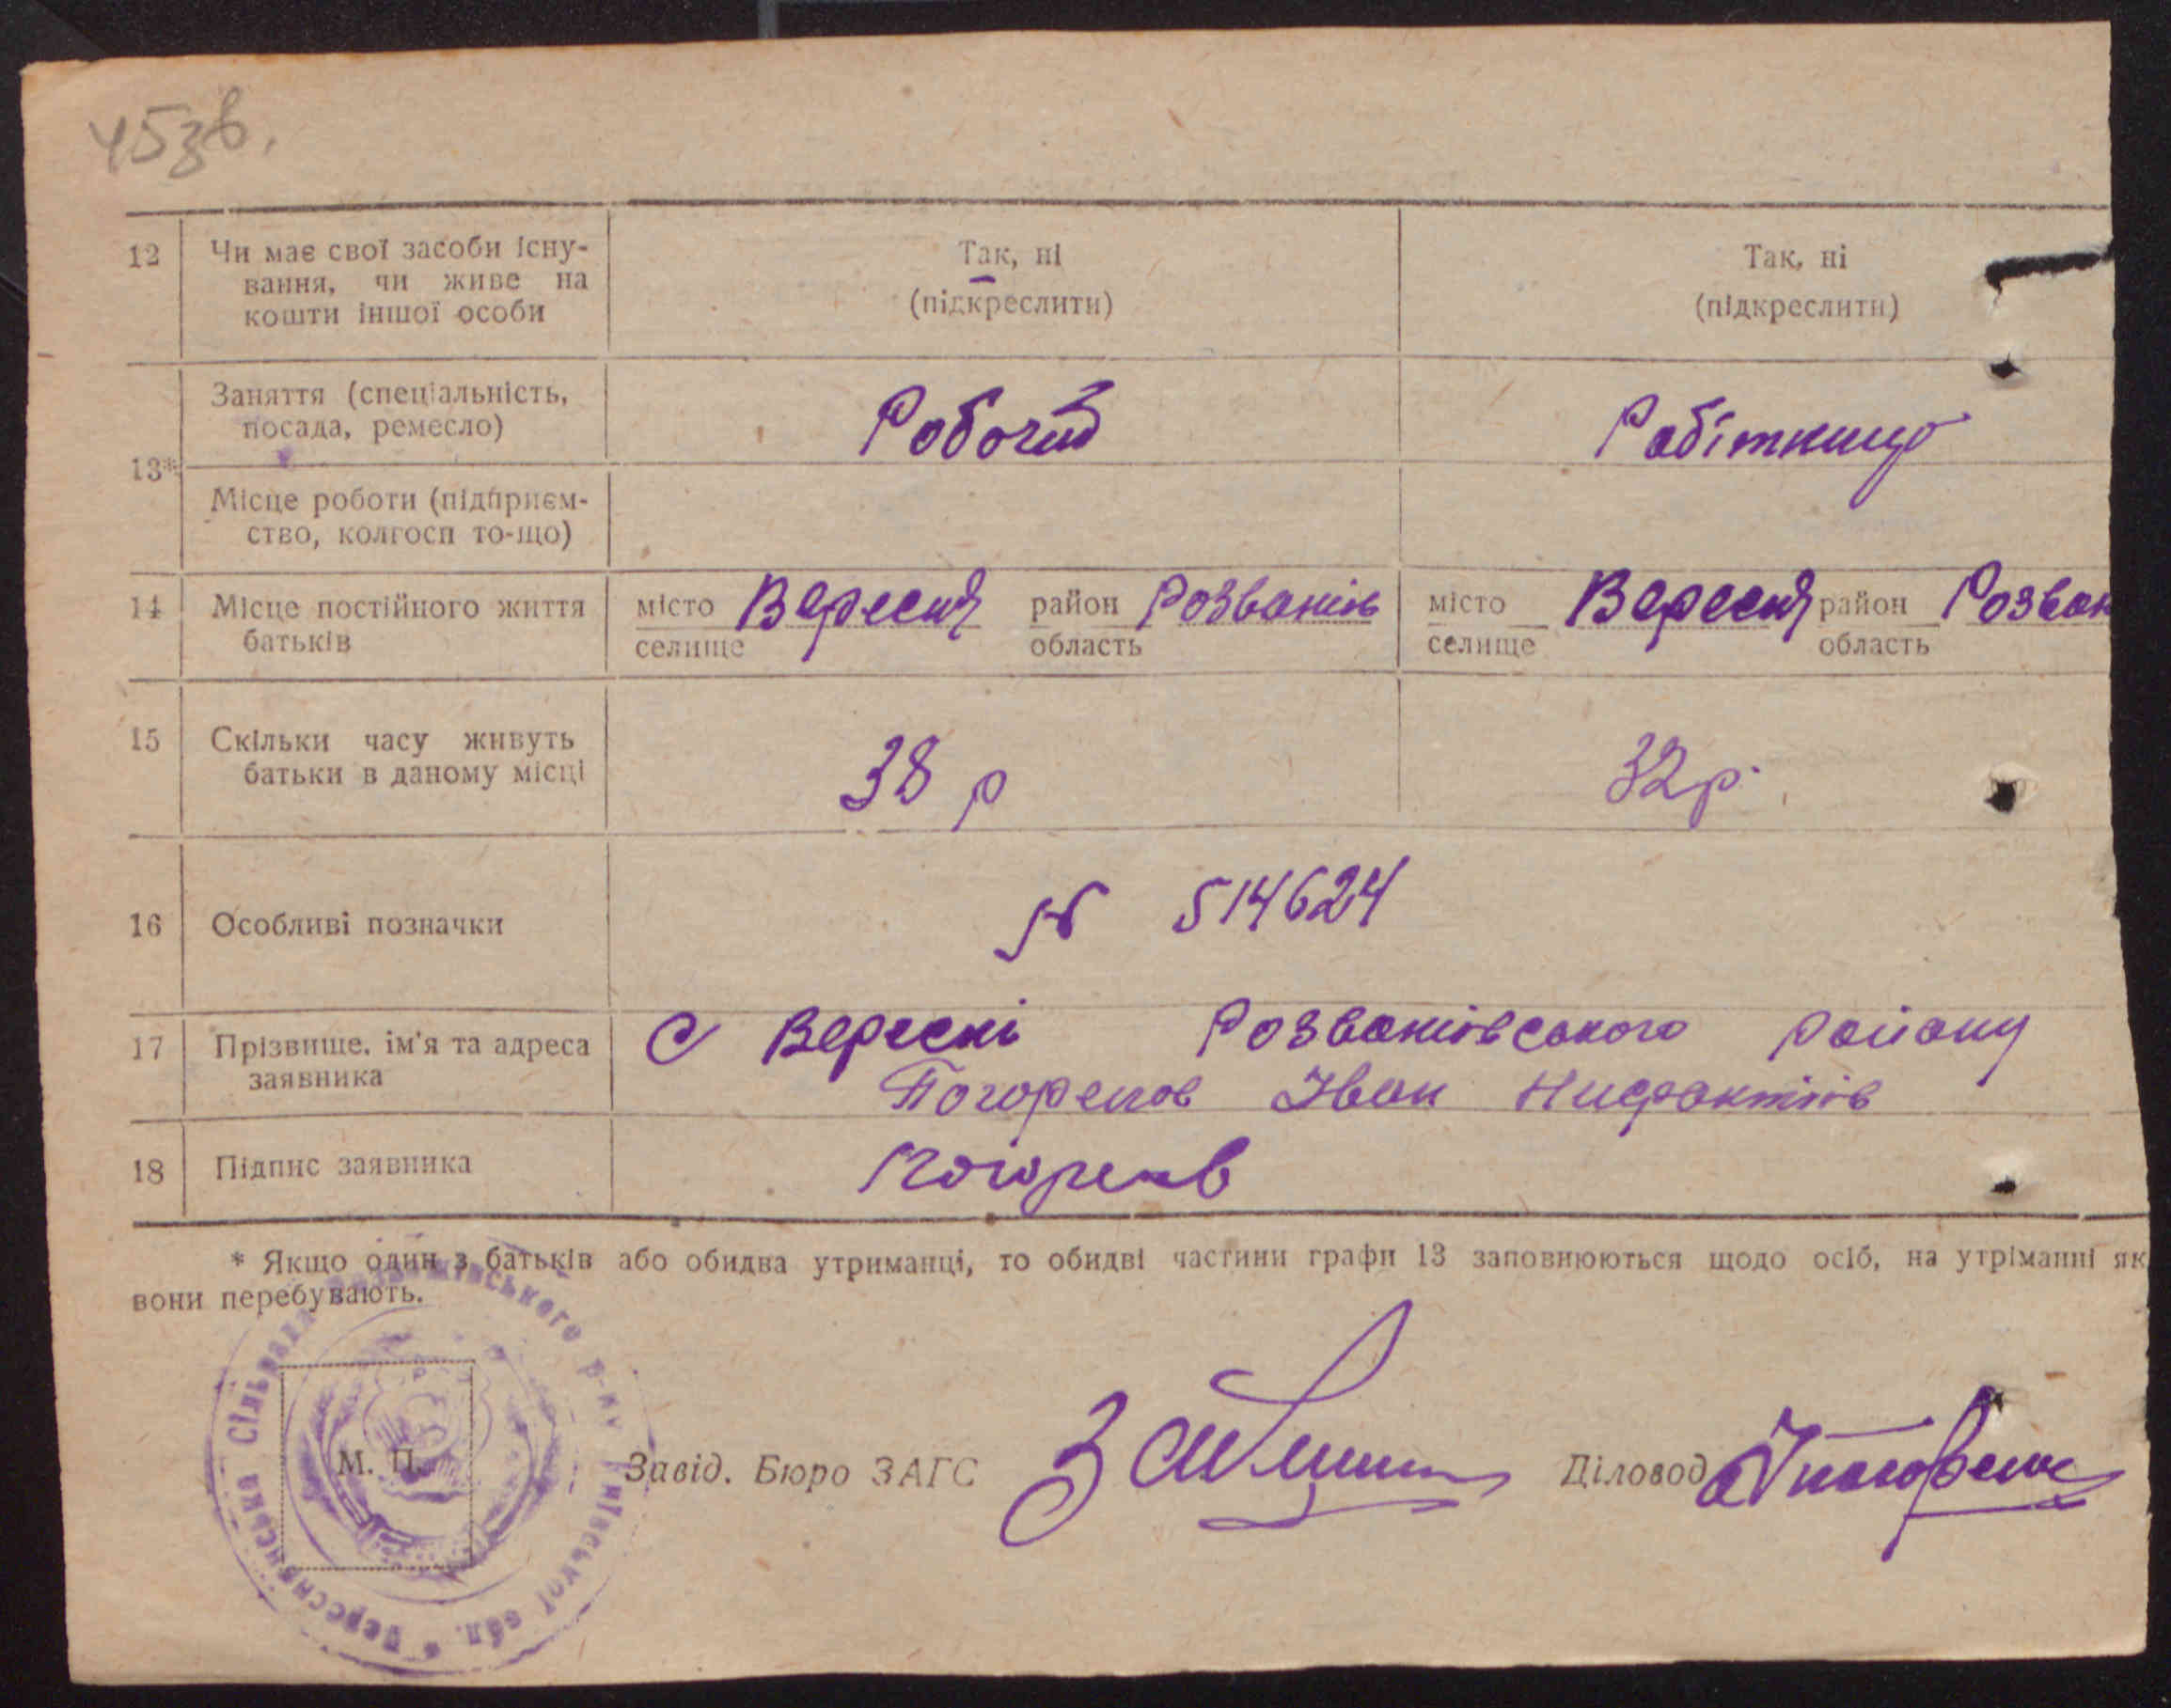 45зв.
12 Чи має свої засоби існу- Так, ні Так, ні
вання, чи живе на (підкреслити) (підкреслити)
кошти іншої особи
Заняття (спеціальність, Робочий Робітниця
посада, ремесло)
13*
Місце роботи (підприєм-
ство, колгосп то-що)
14 Місце постійного життя місто Вересня район Розванів місто Вересня район Розван
батьків селище область селище область
15 Скільки часу живуть 38 р 32р.
батьки в даному місці
16 Особливі позначки № 514624
17 Прізвище, ім'я та адреса С Вересні Розванівського району
заявника Погорелов Іван
18 Підпис заявника
* Якщо один з батьків або обидва утриманці, то обидві частини графи 13 заповнюються щодо осіб, на утріманні як
вони перебувають.
М. П.
Завід. Бюро ЗАГС Діловод
Сільрада р-ну обл.